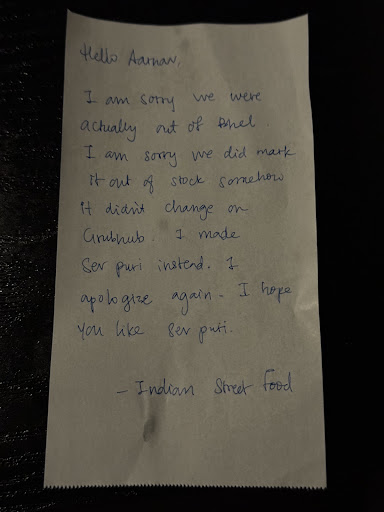 Hello Aarnav,
I am sorry we were
actually out of Bhel.
I am sorry we did mark
it out of stock somehow
it didn't change on
Grubhub. I made
Sev puri instead. I
apologize again. I hope
you like Sev puri.
- Indian Street Food